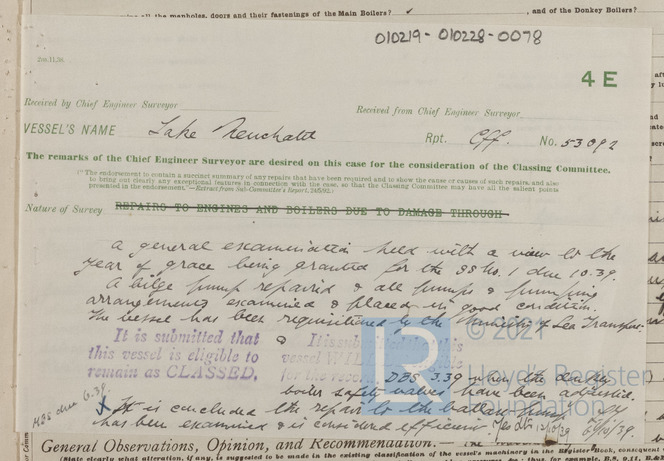 all the manholes, doors and their fastenings of the Main Boilers? ✓ , and of the Donkey Boilers?
010219-010228-0078
4 E
Received by Chief Engineer Surveyor
Received from Chief Engineer Surveyor
VESSEL'S NAME Lake Neuchatel Rpt. Cff. No. 53092
The remarks of the Chief Engineer Surveyor are desired on this case for the consideration of the Classing Committee.
("The endorsement to contain a succinct summary of any repairs that have been required and to show the cause or causes of such repairs, and also
to bring out clearly any exceptional features in connection with the case, so that the Classing Committee may have all the salient points
presented in the endorsement."—Extract from Sub-Committee's Report,
Nature of Survey REPAIRS TO ENGINES AND BOILERS DUE TO DAMAGE THROUGH
A general examination held with a view to the
year of grace being granted for the SS No. 1 due 10.39.
A bilge pump repaired & all pumps & pumping
arrangements examined & placed in good condition.
The vessel has been requisitioned by the Ministry of Sea Transport.
It is submitted that
this vessel is eligible to
remain as CLASSED.
It is submitted that this
vessel WILL
for the record DBS 3.39 when the donkey
boiler safety valves have been adjusted.
© 2021
Lloyd's Register
Foundation
MBS due 6.39.
It is concluded the repair to the ballast pump
has been examined & is considered efficient 12/10/39
General Observations, Opinion, and Recommendation.
(State clearly what alteration, if any, is suggested to be made in the existing classification of the vessel's machinery in the Register Book, consequent